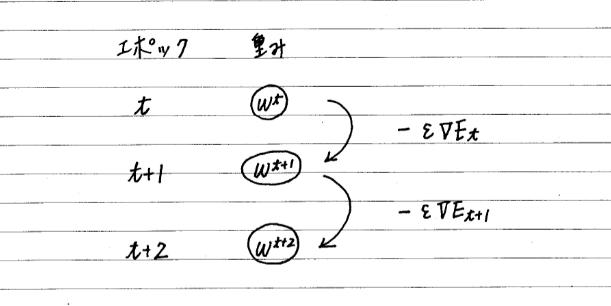 エポック 重み
t w^t
- ε∇E_t
t+1 w^{t+1}
- ε∇E_{t+1}
t+2 w^{t+2}